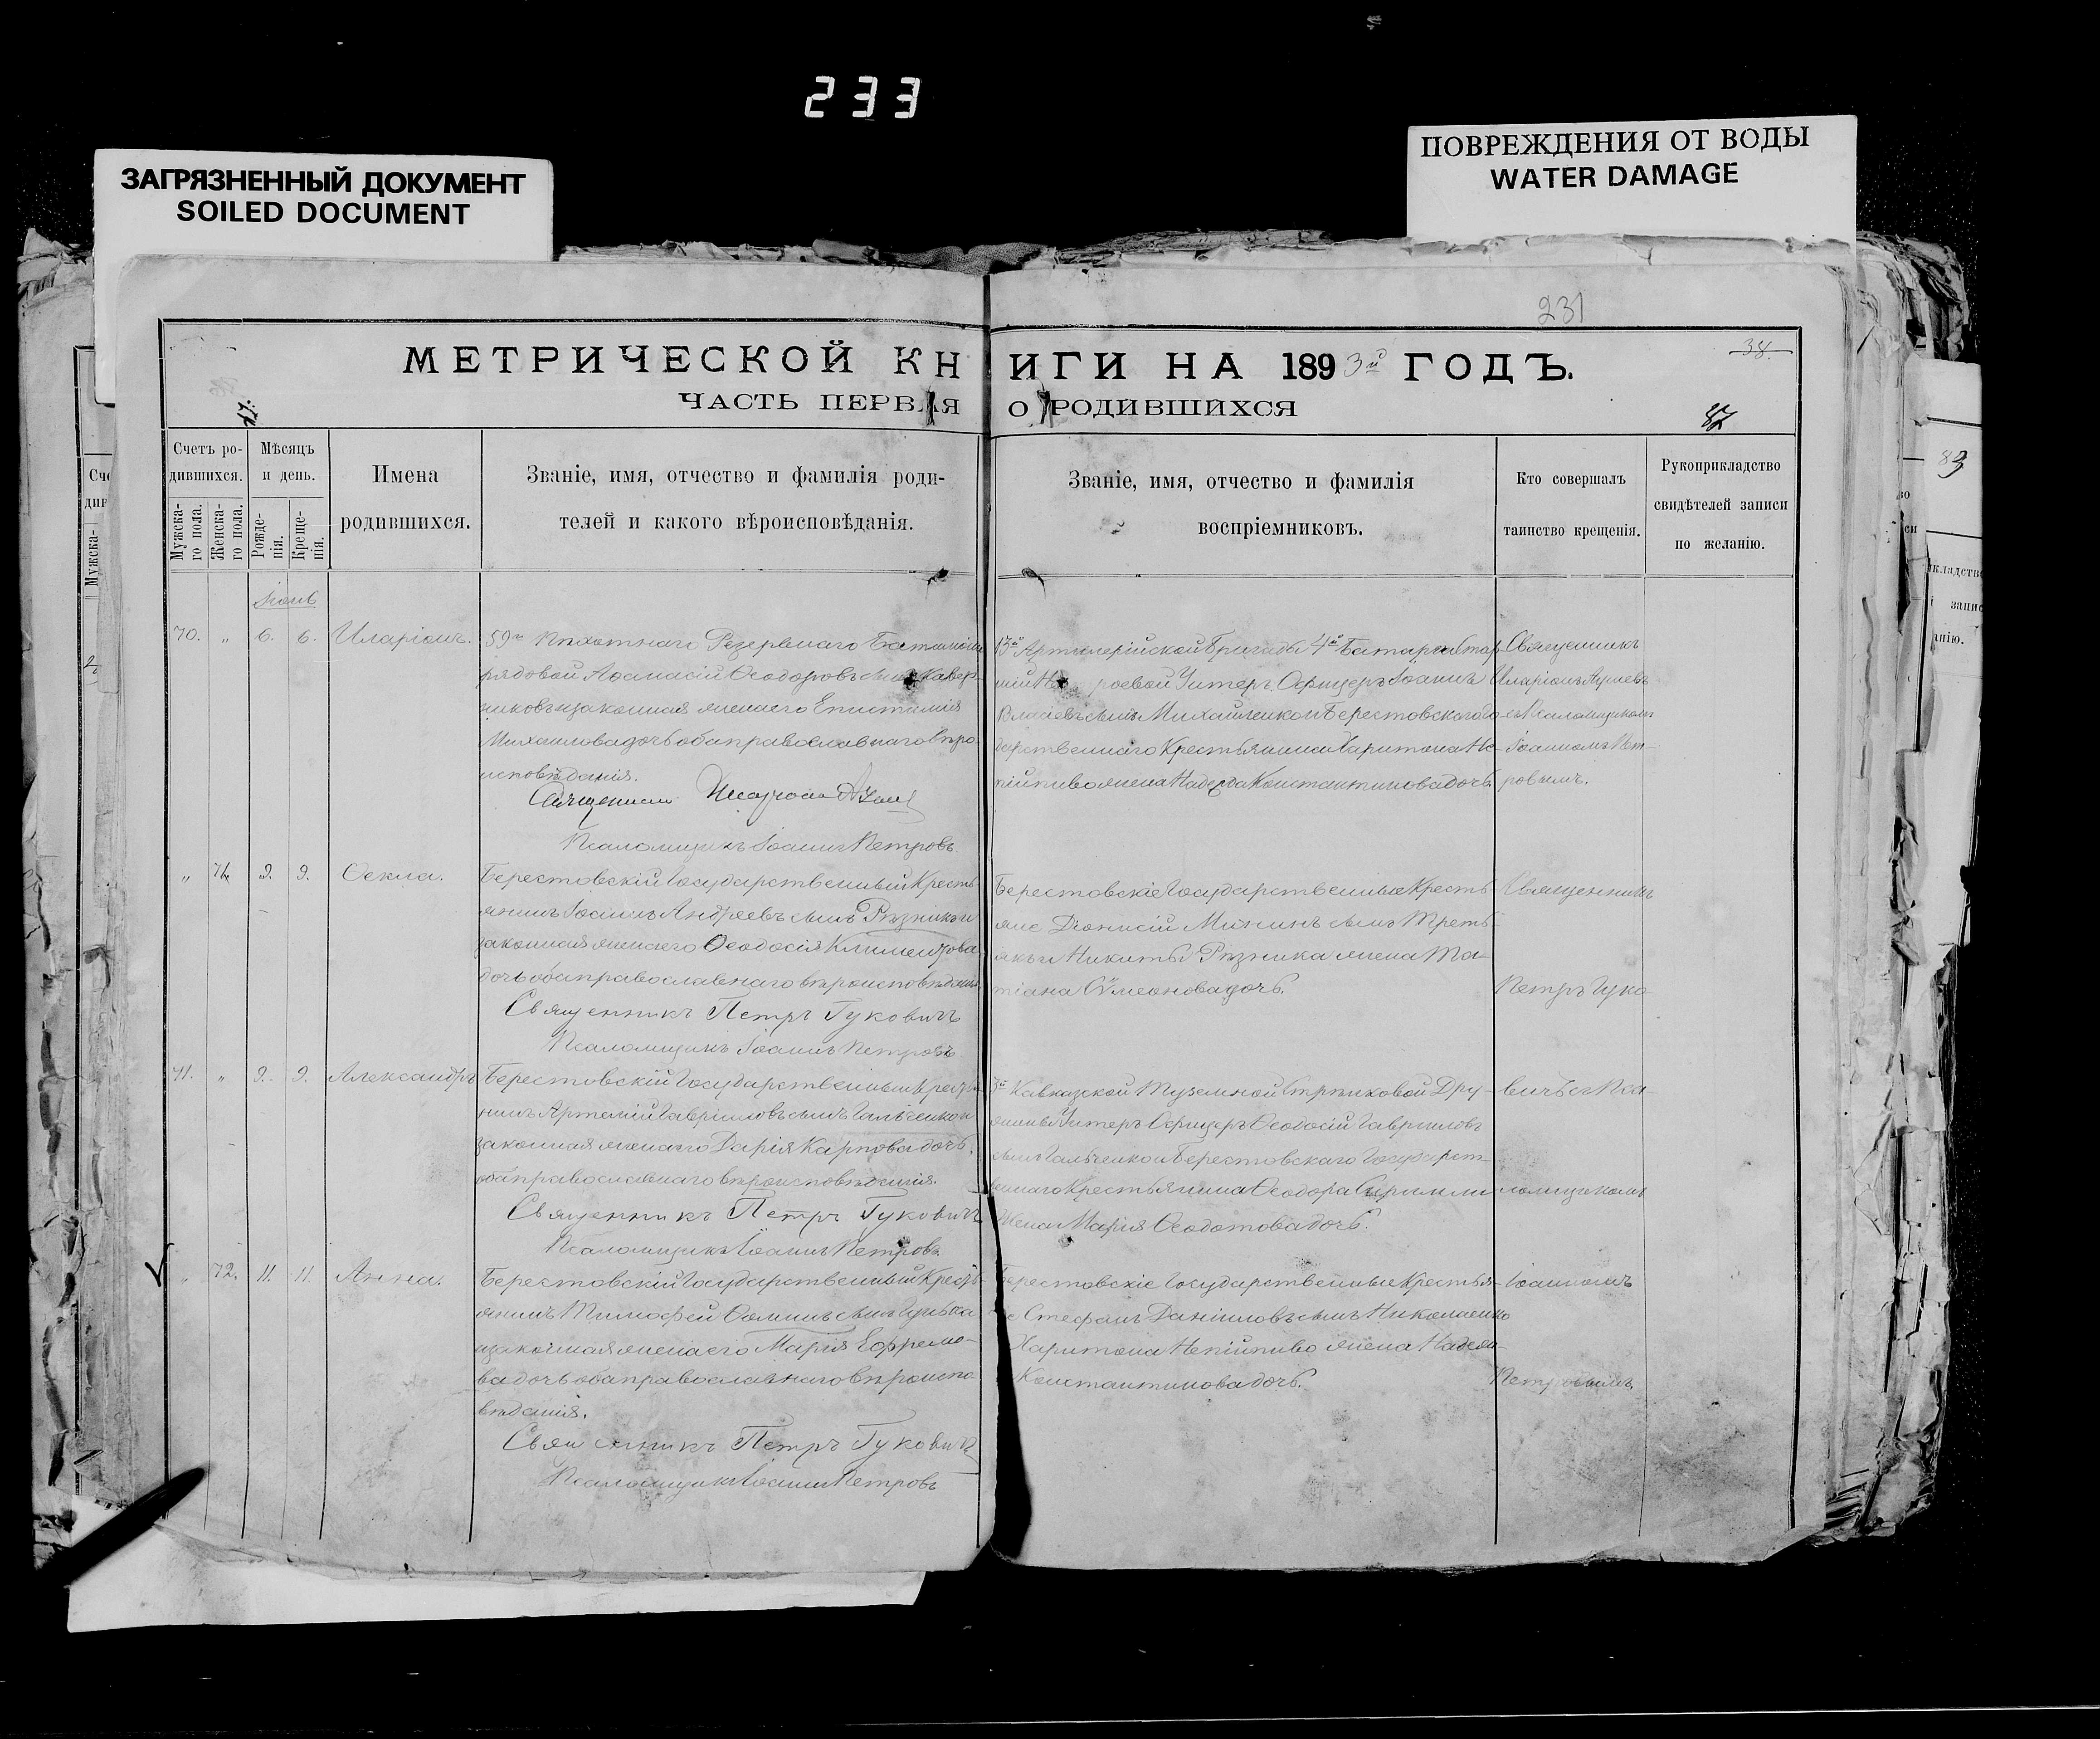 233
ЗАГРЯЗНЕННЫЙ ДОКУМЕНТ
SOILED DOCUMENT
ПОВРЕЖДЕНИЯ ОТ ВОДЫ
WATER DAMAGE
231
38.
МЕТРИЧЕСКОЙ КНИГИ НА 1893й ГОДЪ.
ЧАСТЬ ПЕРВАЯ О РОДИВШИХСЯ
Счетъ ро-
дившихся.
Мужска-
го пола.
Женска-
го пола.
Мѣсяцъ
и день.
Рожде-
нія.
Креще-
нія.
Имена
родившихся.
Званіе, имя, отчество и фамилія роди-
телей и какого вѣроисповѣданія.
Званіе, имя, отчество и фамилія
воспріемниковъ.
Кто совершалъ
таинство крещенія.
Рукоприкладство
свидѣтелей записи
по желанію.
70. " 6. 6. Иларіонъ.
59го Пѣхотнаго Резервнаго
рядовой Аѳанасій Ѳеодоровъ сынъ
законная жена его Епистимія
Михайлова дочь оба православнаго вѣро-
исповѣданія.
Священникъ
Псаломщикъ Іоаннъ Петровъ.
13й Артилерійской Бригады 4й Батареи
Унтеръ Офицеръ Іоаннъ
Власіевъ сынъ Михайленко и Берестовскаго Госу-
дарственнаго Крестьянина Харитона Не-
пійпиво жена Надежда Константинова дочь.
Священникъ
Иларіонъ
съ Псаломщикомъ
Іоанномъ Пет-
ровымъ.
" 71. 9. 9. Ѳекла.
Берестовскій Государственный Кресть-
янинъ Іоаннъ Андреевъ сынъ Рѣзникъ и
законная жена его Ѳеодосія Климентова
дочь оба православнаго вѣроисповѣданія.
Священникъ Петръ Гуковичъ
Псаломщикъ Іоаннъ Петровъ
Берестовскіе Государственные Кресть-
яне Діонисій Мининъ сынъ Треть-
якъ и Никиты Рѣзника жена Та-
тіана Сѵмеонова дочь.
Священникъ
Петръ Гуко-
71. " 9. 9. Александръ
Берестовскій Государственный Кресть-
янинъ Артемій Гавріиловъ сынъ Гальченко и
законная жена его Дарія Карпова дочь,
оба православнаго вѣроисповѣданія.
Священникъ Петръ Гуковичъ
Псаломщикъ Іоаннъ Петровъ.
3й Кавказской Туземной Стрѣлковой Дру-
жины Унтеръ Офицеръ Ѳеодосій Гавриловъ
сынъ Гальченко и Берестовскаго Государст-
веннаго Крестьянина Ѳеодора
жена Марія Ѳеодотова дочь.
вичъ съ Пса-
ломщикомъ
" 72. 11. 11. Анна.
Берестовскій Государственный Кресть-
янинъ Тимофей Ѳоминъ сынъ
и законная жена его Марія Ефремо-
ва дочь оба православнаго вѣроиспо-
вѣданія.
Священникъ Петръ Гуковичъ
Псаломщикъ Іоаннъ Петровъ
Берестовскіе Государственные Крестья-
Стефанъ Даніиловъ сынъ Николаенко
Харитона Непійпиво жена Надеж-
Константинова дочь.
Іоанномъ
Петровымъ.